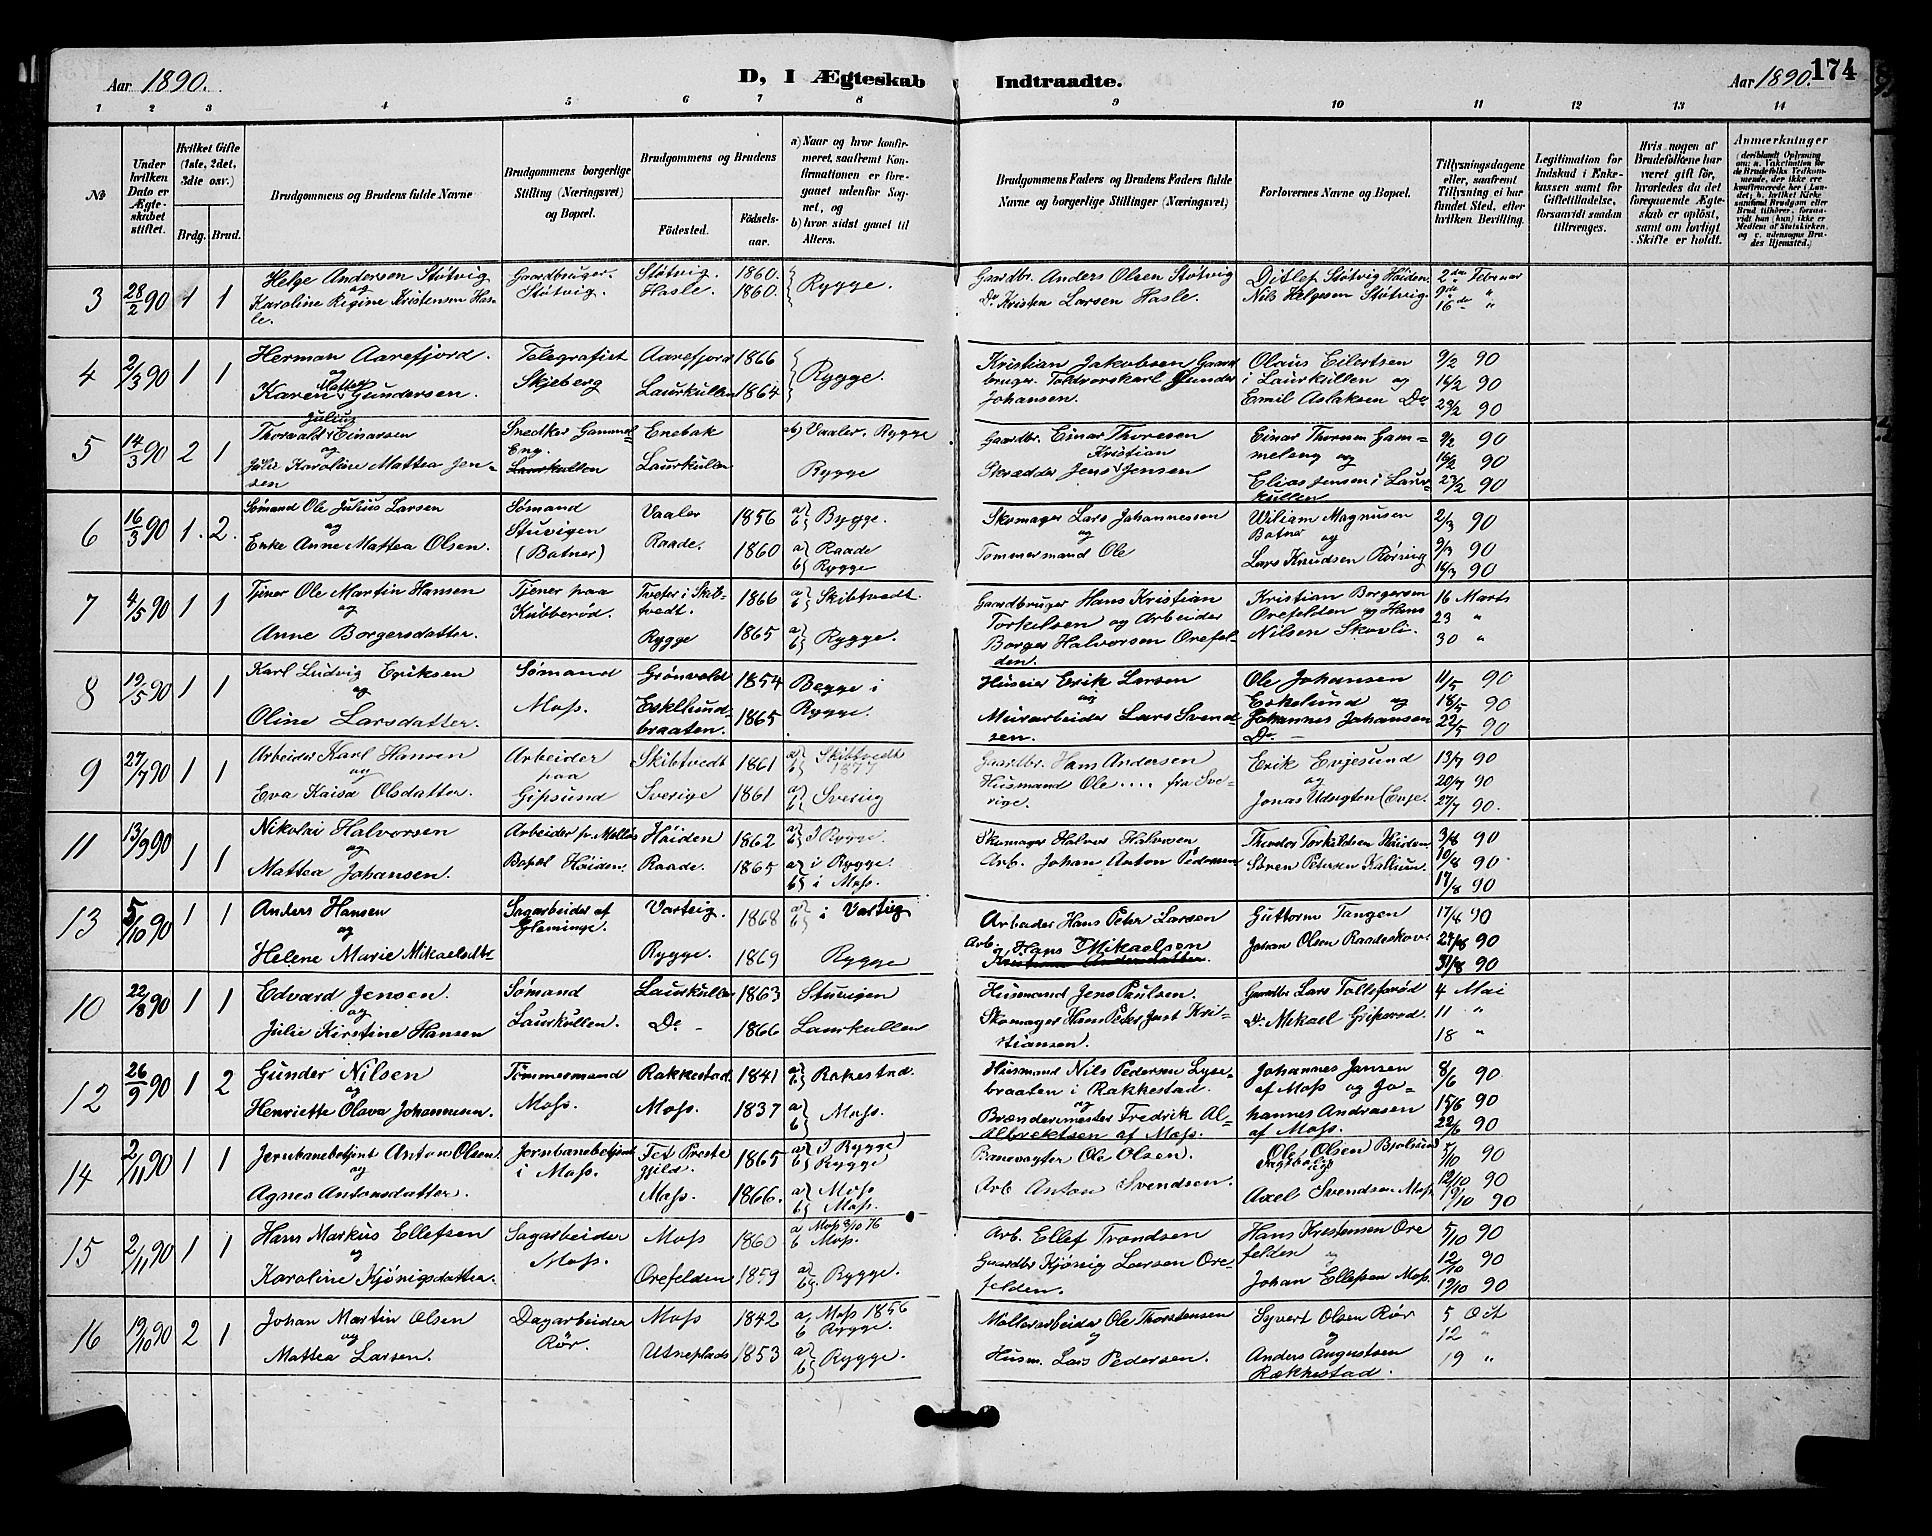 Aar 1890. D, I Ægteskab Indtraadte. Aar 1890. 174
1 2 3 4 5 6 7 8 9 10 11 12 13 14
№
Under hvilken Dato er Ægteskabet stiftet.
Hvilket Gifte (1ste, 2det, 3die osv.)
Brdg. Brud.
Brudgommens og Brudens fulde Navne
Brudgommens borgerlige Stilling (Næringsvei) og Bopæl.
Brudgommens og Brudens
Fødested. Fødselsaar.
a) Naar og hvor konfirmeret, saafremt Konfirmationen er foregaaet udenfor Sognet, og
b) hvor sidst gaaet til Alters.
Brudgommens Faders og Brudens Faders fulde Navne og borgerlige Stillinger (Næringsvei)
Forlovernes Navne og Bopæl.
Tillysningsdagene eller, saafremt Tillysning ei har fundet Sted, efter hvilken Bevilling.
Legitimation for Indskud i Enkekassen samt for Giftetilladelse, forsaavidt saadan tiltrænges.
Hvis nogen af Brudefolkene har været gift før, hvorledes da det foregaaende Ægteskab er opløst, samt om lovligt Skifte er holdt.
Anmærkninger
3 28/2 90 1 1
Helge Andersen Støtvig
og
Karoline Regine Kristensen Hasle.
Gaardbruger. Støtvig.
Støtvig. 1860.
Hasle. 1860.
Rygge.
Gaardbr. Anders Olsen Støtvig
Do. Kristen Larsen Hasle.
Ditlef Støtvig Høiden.
Nils Helgesen Støtvig.
2den Februar
9de "
16de "
4 2/3 90 1 1
Herman Aarefjord.
og
Karen Mathea Gundersen.
Telegrafist Skjeberg
Aarefjord 1866
Laurkullen 1864
Rygge.
Kristian Jakobsen Gaardbruger. Toldvorskarl Gunder Johansen.
Olaus Eilertsen i Laurkullen og Emil Aslaksen Do
9/2 90
16/2 90
23/2 90
5 14/3 90 2 1
Thorvald Julius Einarsen
og
Julie Karoline Mattea Jensen
Snedker Gammeleng. Laurkullen
Enebak
Laurkullen
b) Vaaler. Rygge
Rygge
Gaardbr. Einar Thoresen
Skrædder Jens Kristian Jensen
Einar Thoresen Gammeleng og
Elias Jensen i Laurkullen
9/2 90
16/2 90
23/2 90
6 16/3 90 1. 2.
Sømand Ole Julius Larsen
og
Enke Anne Mattea Olsen.
Sømand Stuvigen (Botner)
Vaaler 1856
Raade. 1860
a) b) Rygge.
a) Raade
b) Rygge
Skomager Lars Johannessen
og
Tømmermand Ole
Wiliam Magnusen Botner og
Lars Knudsen Rørvig
2/3 90
9/3 90
16/3 90
7 4/5 90 1 1
Tjener Ole Martin Hansen
og
Anne Borgersdatter.
Tjener paa Kubberød.
Tveter i Skibtvedt. 1866
Rygge 1865
a) b) Skibtvedt.
a) b) Rygge.
Gaardbruger Hans Kristian Torkelsen og Arbeider Borger Halvorsen Orefelden.
Kristian Borgersen Orefelden og Hans Nilsen Skovli.
16 Marts
23 "
30 "
8 19/5 90 1 1
Karl Ludvig Eriksen
og
Oline Larsdatter.
Sømand Moss.
Grønvold 1854
Eskelundbraaten. 1865
Begge i Rygge.
Huseier Erik Larsen
og
Murarbeider Lars Svendsen.
Ole Johansen Eskelund og
Johannes Johansen Do. —
11/5 90
18/5 90
22/5 90
9 27/7 90 1 1
Arbeider Karl Hansen
og
Eva Kaisa Olsdatter.
Arbeider paa Gipsund
Skibtvedt 1861
Sverige 1861
a) b) Skibtvedt 1877
a) b) Sverig
Gaardbr. Hans Andersen
Husmand Ole .... fra Sverige.
Erik Evjesund
og
Jonas Udengten (Evje.
13/7 90
20/7 90
27/7 90.
11 13/9 90 1 1
Nikolai Halvorsen
og
Mattea Johansen.
Arbeider pr. Melløs Bopæl Høiden.
Høiden 1862
Raade. 1865
a) b) I Rygge.
a) i Rygge.
b) i Moss.
Skomager Halvor Halvorsen
Arb. Johan Anton Pedersen
Theodor Torkildsen Høiden
Søren Petersen Kallum.
3/8 90
10/8 90
17/8 90
13 5/10 90 1 1
Anders Hansen
og
Helene Marie Mikaelsdtr
Sagarbeider af Glemminge.
Varteig. 1868
Rygge. 1869
a) b) i Varteig
Rygge
Arbeider Hans Peter Larsen
Arb. Hans Mikaelsen
Guttorm Tangen
Johan Olsen Raadeskov.
17/8 90
24/8 90
31/8 90
10 22/8 90 1 1
Edvard Jensen.
og
Julie Kirstine Hansen
Sømand Laurkullen.
Laurkullen 1863
Do — 1866
Stuvigen
Laurkullen
Husmand Jens Paulsen.
Skomager Hans Peder Just Kristiansen.
Gaardbr Lars Tollefsrød.
Do. Mikael Gipsrød.
4 Mai
11 "
18 "
12 26/9 90 1 2
Gunder Nilsen
og
Henriette Olava Johannesen.
Tømmermand Moss.
Rakkestad. 1841
Moss. 1837
a) b) Rakestad.
a) b) Moss.
Husmand Nils Pedersen Lysebraaten i Rakkestad.
og
Brændermester Fredrik Al-Albrektsen af Moss.
Johannes Jansen af Moss og Johannes Andrasen af Moss.
8/6 90
15/6 90
22/6 90
14 2/11 90 1 1
Jernbanebetjent Anton Olsen.
og
Agnes Antonsdatter.
Jernbanebetjent i Moss.
Fet Prestegjeld. 1865
Moss. 1866.
a) I Rygge
b) Rygge
a) Moss
b) Moss.
Banevogter Ole Olsen.
Arb Anton Svendsen.
Ole Olsen Bjølsund
og
Axel Svendsen Moss.
5/10 90
12/10 90
19/10 90
15 2/11 90 1 1
Hans Markus Ellefsen
og
Karoline Kjønigsdatter.
Sagarbeider Moss.
Moss 1860
Orefelden 1859
a Moss 8/10 76
b Moss.
a) b) Rygge.
Arb. Ellef Trondsen
Gaardbr Kjønig Larsen Orefelden.
Hans Kristensen Orefelden
og
Johan Ellefsen Moss.
5/10 90
12/10 90
19/10 90
16 19/10 90 2 1
Johan Martin Olsen
og
Mattea Larsen.
Dagarbeider Rør.
Moss 1842
Utneplads 1853
a, Moss 1856
b Rygge.
a) b) Rygge.
Møllerarbeider Ole Thorstensen
og
Husm. Lars Pedersen.
Syvert Olsen Rør
og
Anders Augustsen Rækkestad.
5 Oct
12 "
19 "